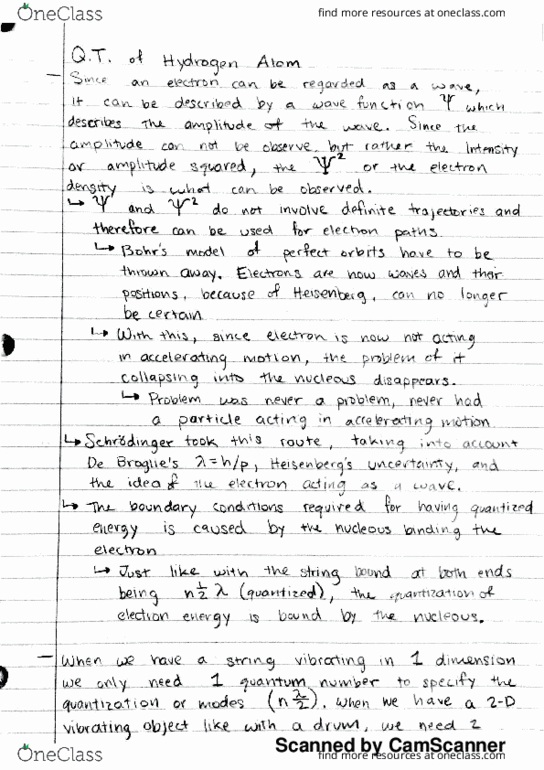 OneClass
find more resources at oneclass.com
Q.T. of Hydrogen Atom
— Since an electron can be regarded as a wave,
it can be described by a wave function Ψ which
describes the amplitude of the wave. Since the
amplitude can not be observe but rather the intensity
or amplitude squared, the Ψ² or the electron
density is what can be observed.
↳ Ψ and Ψ² do not involve definite trajectories and
therefore can be used for electron paths.
↳ Bohr's model of perfect orbits have to be
thrown away. Electrons are now waves and their
positions, because of Heisenberg, can no longer
be certain
↳ With this, since electron is now not acting
in accelerating motion, the problem of it
collapsing into the nucleous disappears.
↳ Problem was never a problem, never had
a particle acting in accelerating motion
↳ Schrödinger took this route, taking into account
De Broglie's λ=h/p, Heisenberg's uncertainty, and
the idea of the electron acting as a wave.
↳ The boundary conditions required for having quantized
energy is caused by the nucleous binding the
electron
↳ Just like with the string bound at both ends
being n½λ (quantized), the quantization of
electron energy is bound by the nucleous.
— When we have a string vibrating in 1 dimension
we only need 1 quantum number to specify the
quantization or modes (n λ/2). When we have a 2-D
vibrating object like with a drum, we need 2
Scanned by CamScanner
OneClass
find more resources at oneclass.com